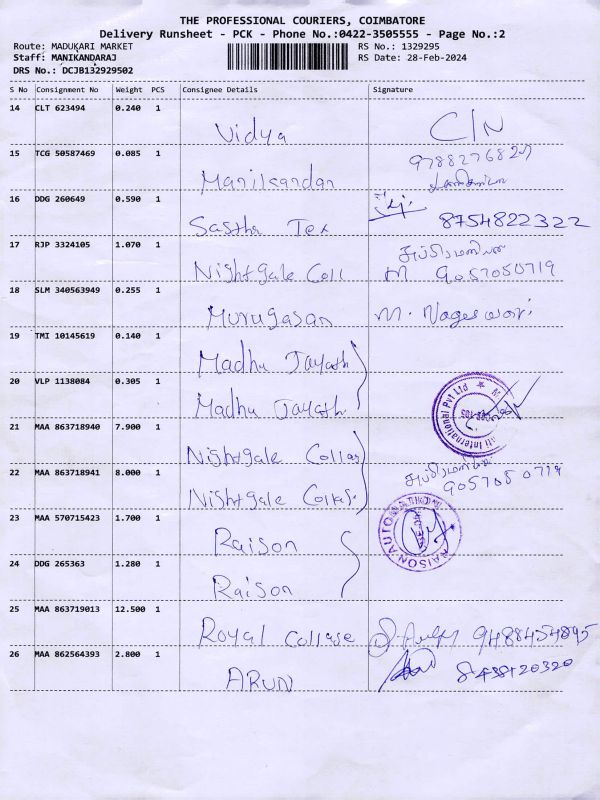 THE PROFESSIONAL COURIERS, COIMBATORE
Delivery Runsheet - PCK - Phone No.:0422-3505555 - Page No.:2
Route: MADUKARI MARKET
Staff: MANIKANDARAJ
DRS No.: DCJB132929502
RS No.: 1329295
RS Date: 28-Feb-2024
S No Consignment No Weight PCS Consignee Details Signature
14 CLT 623494 0.240 1 Vidya C/N
15 TCG 50587469 0.085 1 Manikandan
16 DDG 260649 0.590 1 Sastha Tex 8754822322
17 RJP 3324105 1.070 1 Nishtgale Coll M 9057050719
18 SLM 340563949 0.255 1 Murugasan M. Nageswari
19 TMI 10145619 0.140 1 Madhu Jayath
20 VLP 1138084 0.305 1 Madhu Jayath
21 MAA 863718940 7.900 1 Nishtgale Collas
22 MAA 863718941 8.000 1 Nishtgale 9057050719
23 MAA 570715423 1.700 1 Raison RAISON AUTO
24 DDG 265363 1.280 1 Raison
25 MAA 863719013 12.500 1 Royal College 9488454895
26 MAA 862564393 2.800 1 ARUN 8438120320